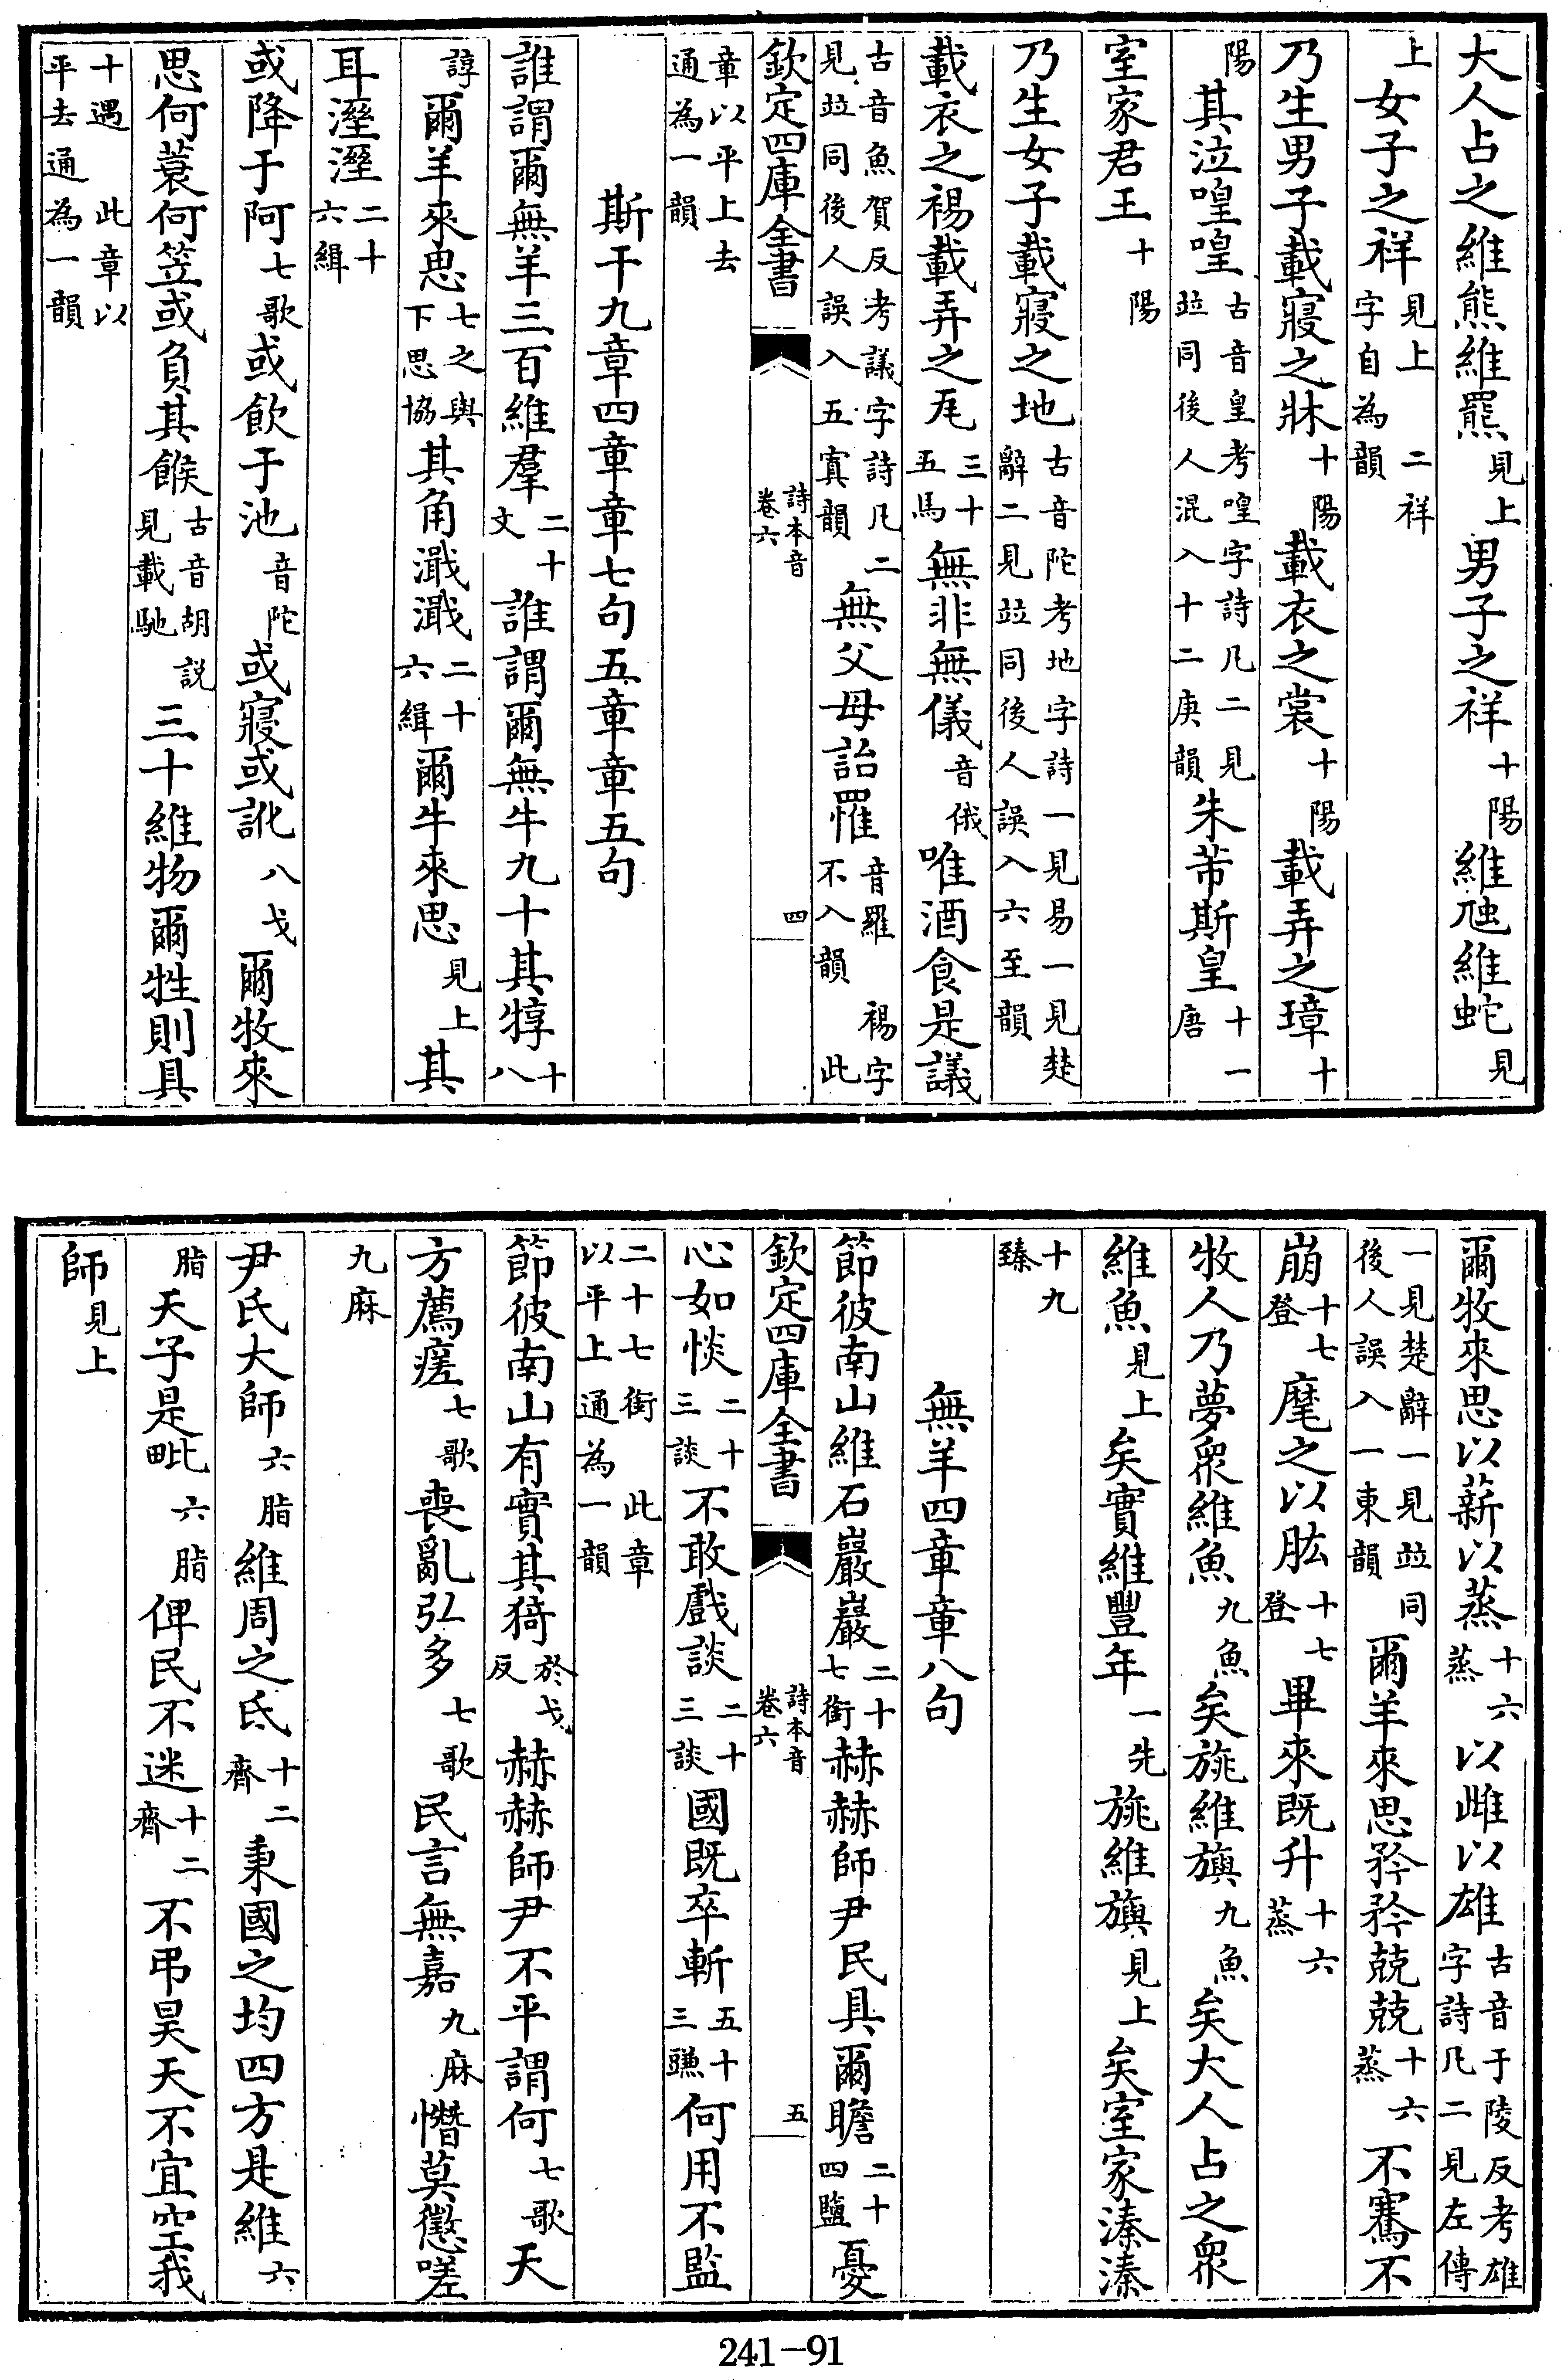 大人占之維熊維羆見上男子之祥十陽維虺維蛇見
上女子之祥見上 二祥字自為韻
乃生男子載寢之牀十陽載衣之裳十陽載弄之璋十
陽其泣喤喤古音皇考喤字詩凡二見竝同後人混入十二庚韻朱芾斯皇十一唐
室家君王十陽
乃生女子載寢之地古音陀考地字詩一見易一見楚辭二見竝同後人誤入六至韻
載衣之裼載弄之瓦三十五馬無非無儀音俄唯酒食是議
古音魚賀反考議字詩凡二見竝同後人誤入五寘韻無父母詒罹音羅 裼字不入韻 此
章以平上去通為一韻
斯干九章四章章七句五章章五句
誰謂爾無羊三百維羣二十文誰謂爾無牛九十其犉十八
諄爾羊來思七之與下思協其角濈濈二十六緝爾牛來思見上其
耳溼溼二十六緝
或降于阿七歌或飲于池音陀或寢或訛八戈爾牧來
思何蓑何笠或負其餱古音胡說見載馳三十維物爾牲則具
十遇 此章以平去通為一韻
欽定四庫全書
詩本音
卷六
四
爾牧來思以薪以蒸十六蒸以雌以雄古音于陵反考雄字詩凡二見左傳
一見楚辭一見竝同後人誤入一東韻爾羊來思矜矜兢兢十六蒸不騫不
崩十七登麾之以肱十七登畢來既升十六蒸
牧人乃夢衆維魚九魚矣旐維旟九魚矣大人占之衆
維魚見上矣實維豐年一先旐維旟見上矣室家溱溱
十九臻
無羊四章章八句
節彼南山維石巖巖二十七銜赫赫師尹民具爾瞻二十四鹽憂
心如惔二十三談不敢戲談二十三談國既卒斬五十三豏何用不監
二十七銜 此章以平上通為一韻
節彼南山有實其猗於戈反赫赫師尹不平謂何七歌天
方薦瘥七歌喪亂弘多七歌民言無嘉九麻憯莫懲嗟
九麻
尹氏大師六脂維周之氐十二齊秉國之均四方是維六
脂天子是毗六脂俾民不迷十二齊不弔昊天不宜空我
師見上
欽定四庫全書
詩本音
卷六
五
241-91